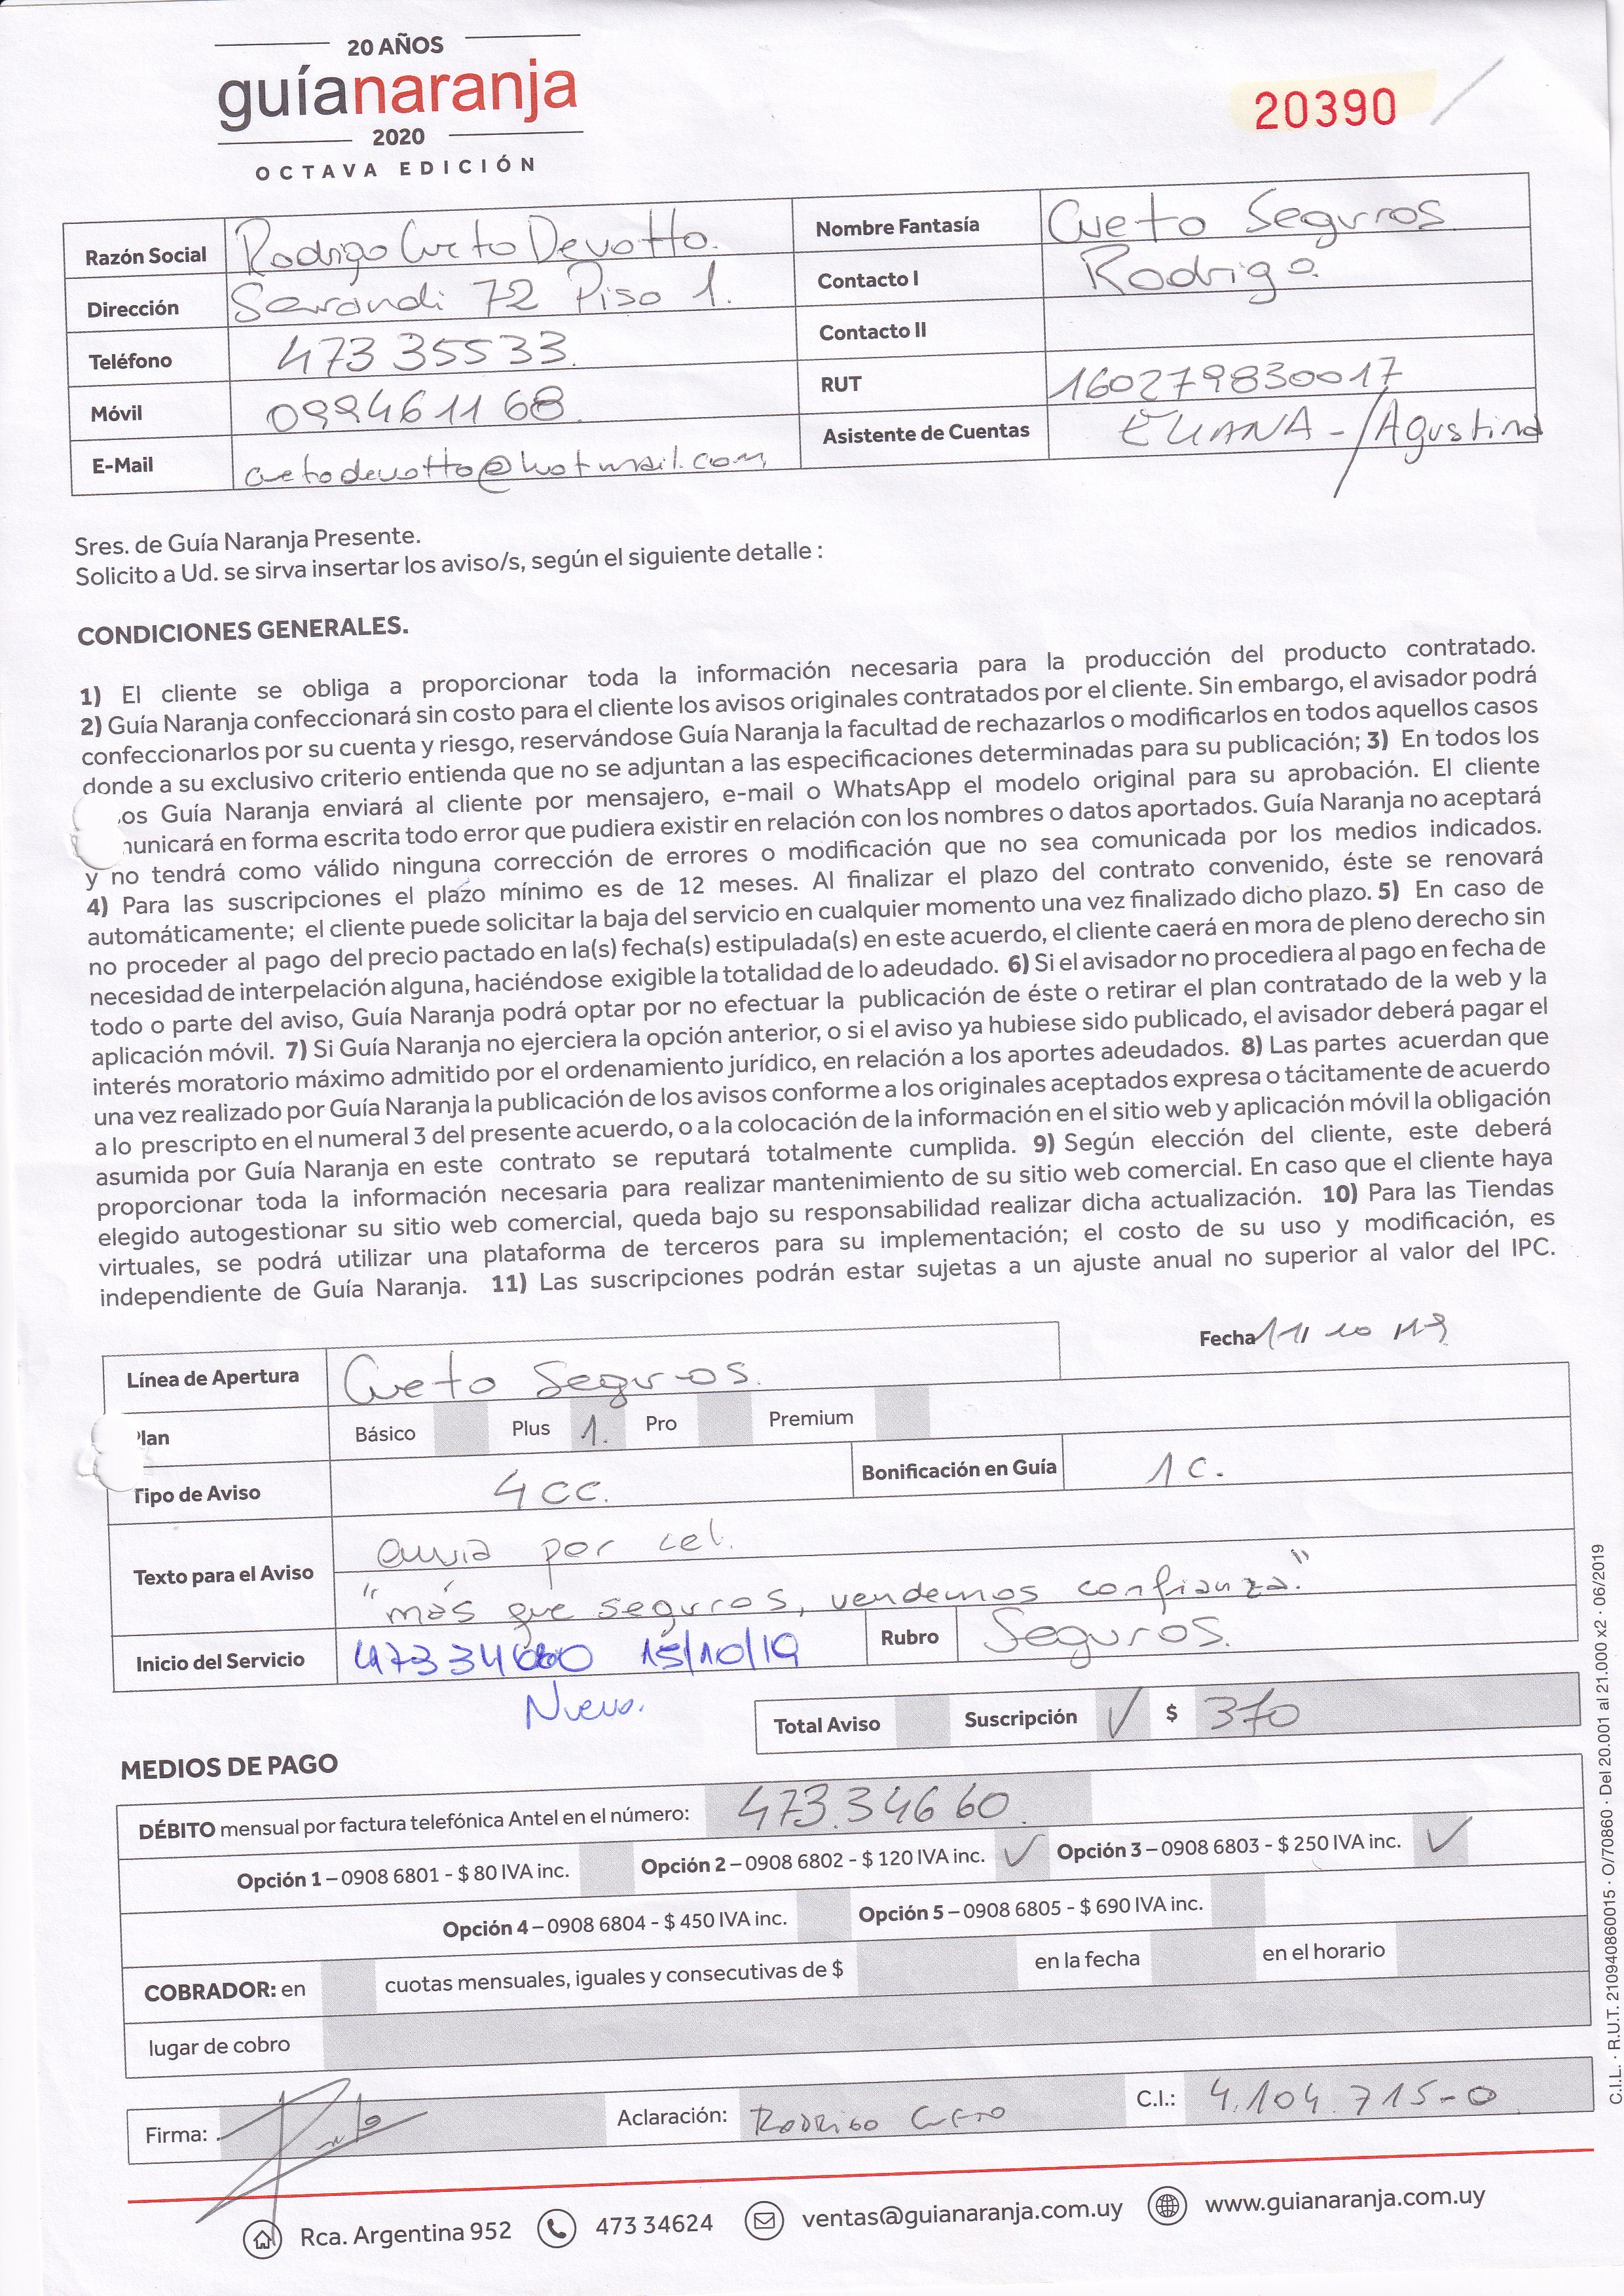 20 AÑOS
guíanaranja
2020
OCTAVA EDICIÓN
20390
Razón Social Rodrigo Cueto Devotto. Nombre Fantasía Cueto Seguros.
Dirección Sarandi 72 Piso 1. Contacto I Rodrigo.
Teléfono 473 35533. Contacto II
Móvil 099461168. RUT 160279830017
E-Mail cuetodevotto@hotmail.com Asistente de Cuentas ELIANA - /Agustina
Sres. de Guía Naranja Presente.
Solicito a Ud. se sirva insertar los aviso/s, según el siguiente detalle :
CONDICIONES GENERALES.
1) El cliente se obliga a proporcionar toda la información necesaria para la producción del producto contratado.
2) Guía Naranja confeccionará sin costo para el cliente los avisos originales contratados por el cliente. Sin embargo, el avisador podrá
confeccionarlos por su cuenta y riesgo, reservándose Guía Naranja la facultad de rechazarlos o modificarlos en todos aquellos casos
donde a su exclusivo criterio entienda que no se adjuntan a las especificaciones determinadas para su publicación; 3) En todos los
os Guía Naranja enviará al cliente por mensajero, e-mail o WhatsApp el modelo original para su aprobación. El cliente
unicará en forma escrita todo error que pudiera existir en relación con los nombres o datos aportados. Guía Naranja no aceptará
y no tendrá como válido ninguna corrección de errores o modificación que no sea comunicada por los medios indicados.
4) Para las suscripciones el plazo mínimo es de 12 meses. Al finalizar el plazo del contrato convenido, éste se renovará
automáticamente; el cliente puede solicitar la baja del servicio en cualquier momento una vez finalizado dicho plazo. 5) En caso de
no proceder al pago del precio pactado en la(s) fecha(s) estipulada(s) en este acuerdo, el cliente caerá en mora de pleno derecho sin
necesidad de interpelación alguna, haciéndose exigible la totalidad de lo adeudado. 6) Si el avisador no procediera al pago en fecha de
todo o parte del aviso, Guía Naranja podrá optar por no efectuar la publicación de éste o retirar el plan contratado de la web y la
aplicación móvil. 7) Si Guía Naranja no ejerciera la opción anterior, o si el aviso ya hubiese sido publicado, el avisador deberá pagar el
interés moratorio máximo admitido por el ordenamiento jurídico, en relación a los aportes adeudados. 8) Las partes acuerdan que
una vez realizado por Guía Naranja la publicación de los avisos conforme a los originales aceptados expresa o tácitamente de acuerdo
a lo prescripto en el numeral 3 del presente acuerdo, o a la colocación de la información en el sitio web y aplicación móvil la obligación
asumida por Guía Naranja en este contrato se reputará totalmente cumplida. 9) Según elección del cliente, este deberá
proporcionar toda la información necesaria para realizar mantenimiento de su sitio web comercial. En caso que el cliente haya
elegido autogestionar su sitio web comercial, queda bajo su responsabilidad realizar dicha actualización. 10) Para las Tiendas
virtuales, se podrá utilizar una plataforma de terceros para su implementación; el costo de su uso y modificación, es
independiente de Guía Naranja. 11) Las suscripciones podrán estar sujetas a un ajuste anual no superior al valor del IPC.
Fecha 11 10 19
Línea de Apertura Cueto Seguros.
Plan Básico Plus 1. Pro Premium
Tipo de Aviso 4 cc. Bonificación en Guía 1 c.
Texto para el Aviso envia por cel.
"más que seguros, vendemos confianza."
Inicio del Servicio 47334660 15/10/19 Rubro Seguros.
Nuevo.
Total Aviso Suscripción ✓ $ 370
MEDIOS DE PAGO
DÉBITO mensual por factura telefónica Antel en el número: 473.34660
Opción 1 – 0908 6801 - $ 80 IVA inc. Opción 2 – 0908 6802 - $ 120 IVA inc. ✓ Opción 3 – 0908 6803 - $ 250 IVA inc. ✓
Opción 4 – 0908 6804 - $ 450 IVA inc. Opción 5 – 0908 6805 - $ 690 IVA inc.
COBRADOR: en cuotas mensuales, iguales y consecutivas de $ en la fecha en el horario
lugar de cobro
Firma: Aclaración: Rodrigo Cueto C.I.: 4.104.715-0
Rca. Argentina 952 473 34624 ventas@guianaranja.com.uy www.guianaranja.com.uy
C.I.L. · R.U.T. 210940860015 · O/70860 · Del 20.001 al 21.000 x2 · 06/2019